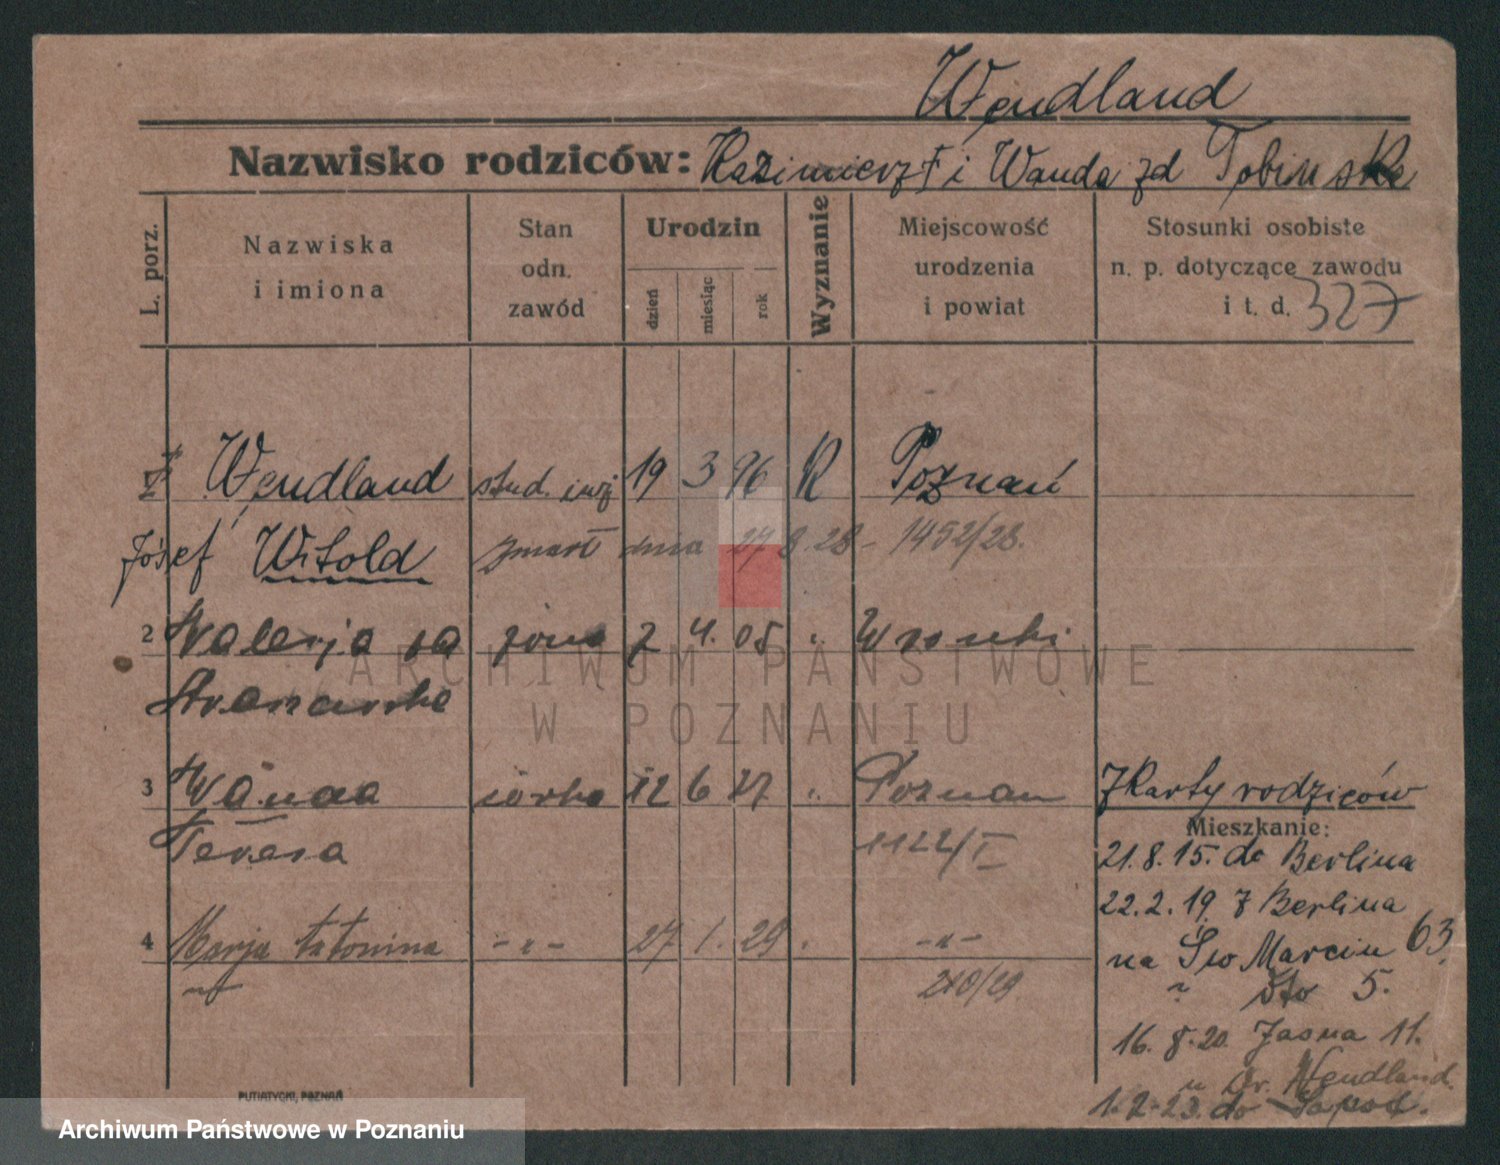 Wendland
Nazwisko rodziców: Kazimierz † i Wanda zd Tobinska
L. porz.
Nazwiska
i imiona
Stan
odn.
zawód
Urodzin
dzień
miesiąc
rok
Wyznanie
Miejscowość
urodzenia
i powiat
Stosunki osobiste
n. p. dotyczące zawodu
i t. d. 327
Wendland stud. inż 19 3 96 R Poznań
Józef Witold zmarł dnia 27 8. 28 - 1452/28.
2 Walerja żona 7 4. 05 " Wronki
3 Wanda córka 12 6 27 " Poznań
Teresa 1122/I
4 Marja Antonina -"- 27 1. 29 " -"-
210/29
Z Karty rodziców
Mieszkanie:
21.8.15. do Berlina
22.2.19 z Berlina
na Św Marcin 63.
" dto 5.
16. 8. 20 Jasna 11.
u Dr. Wendland.
1.2.23. do
PUTIATYCKI, POZNAŃ
ARCHIWUM PAŃSTWOWE
W POZNANIU
Archiwum Państwowe w Poznaniu